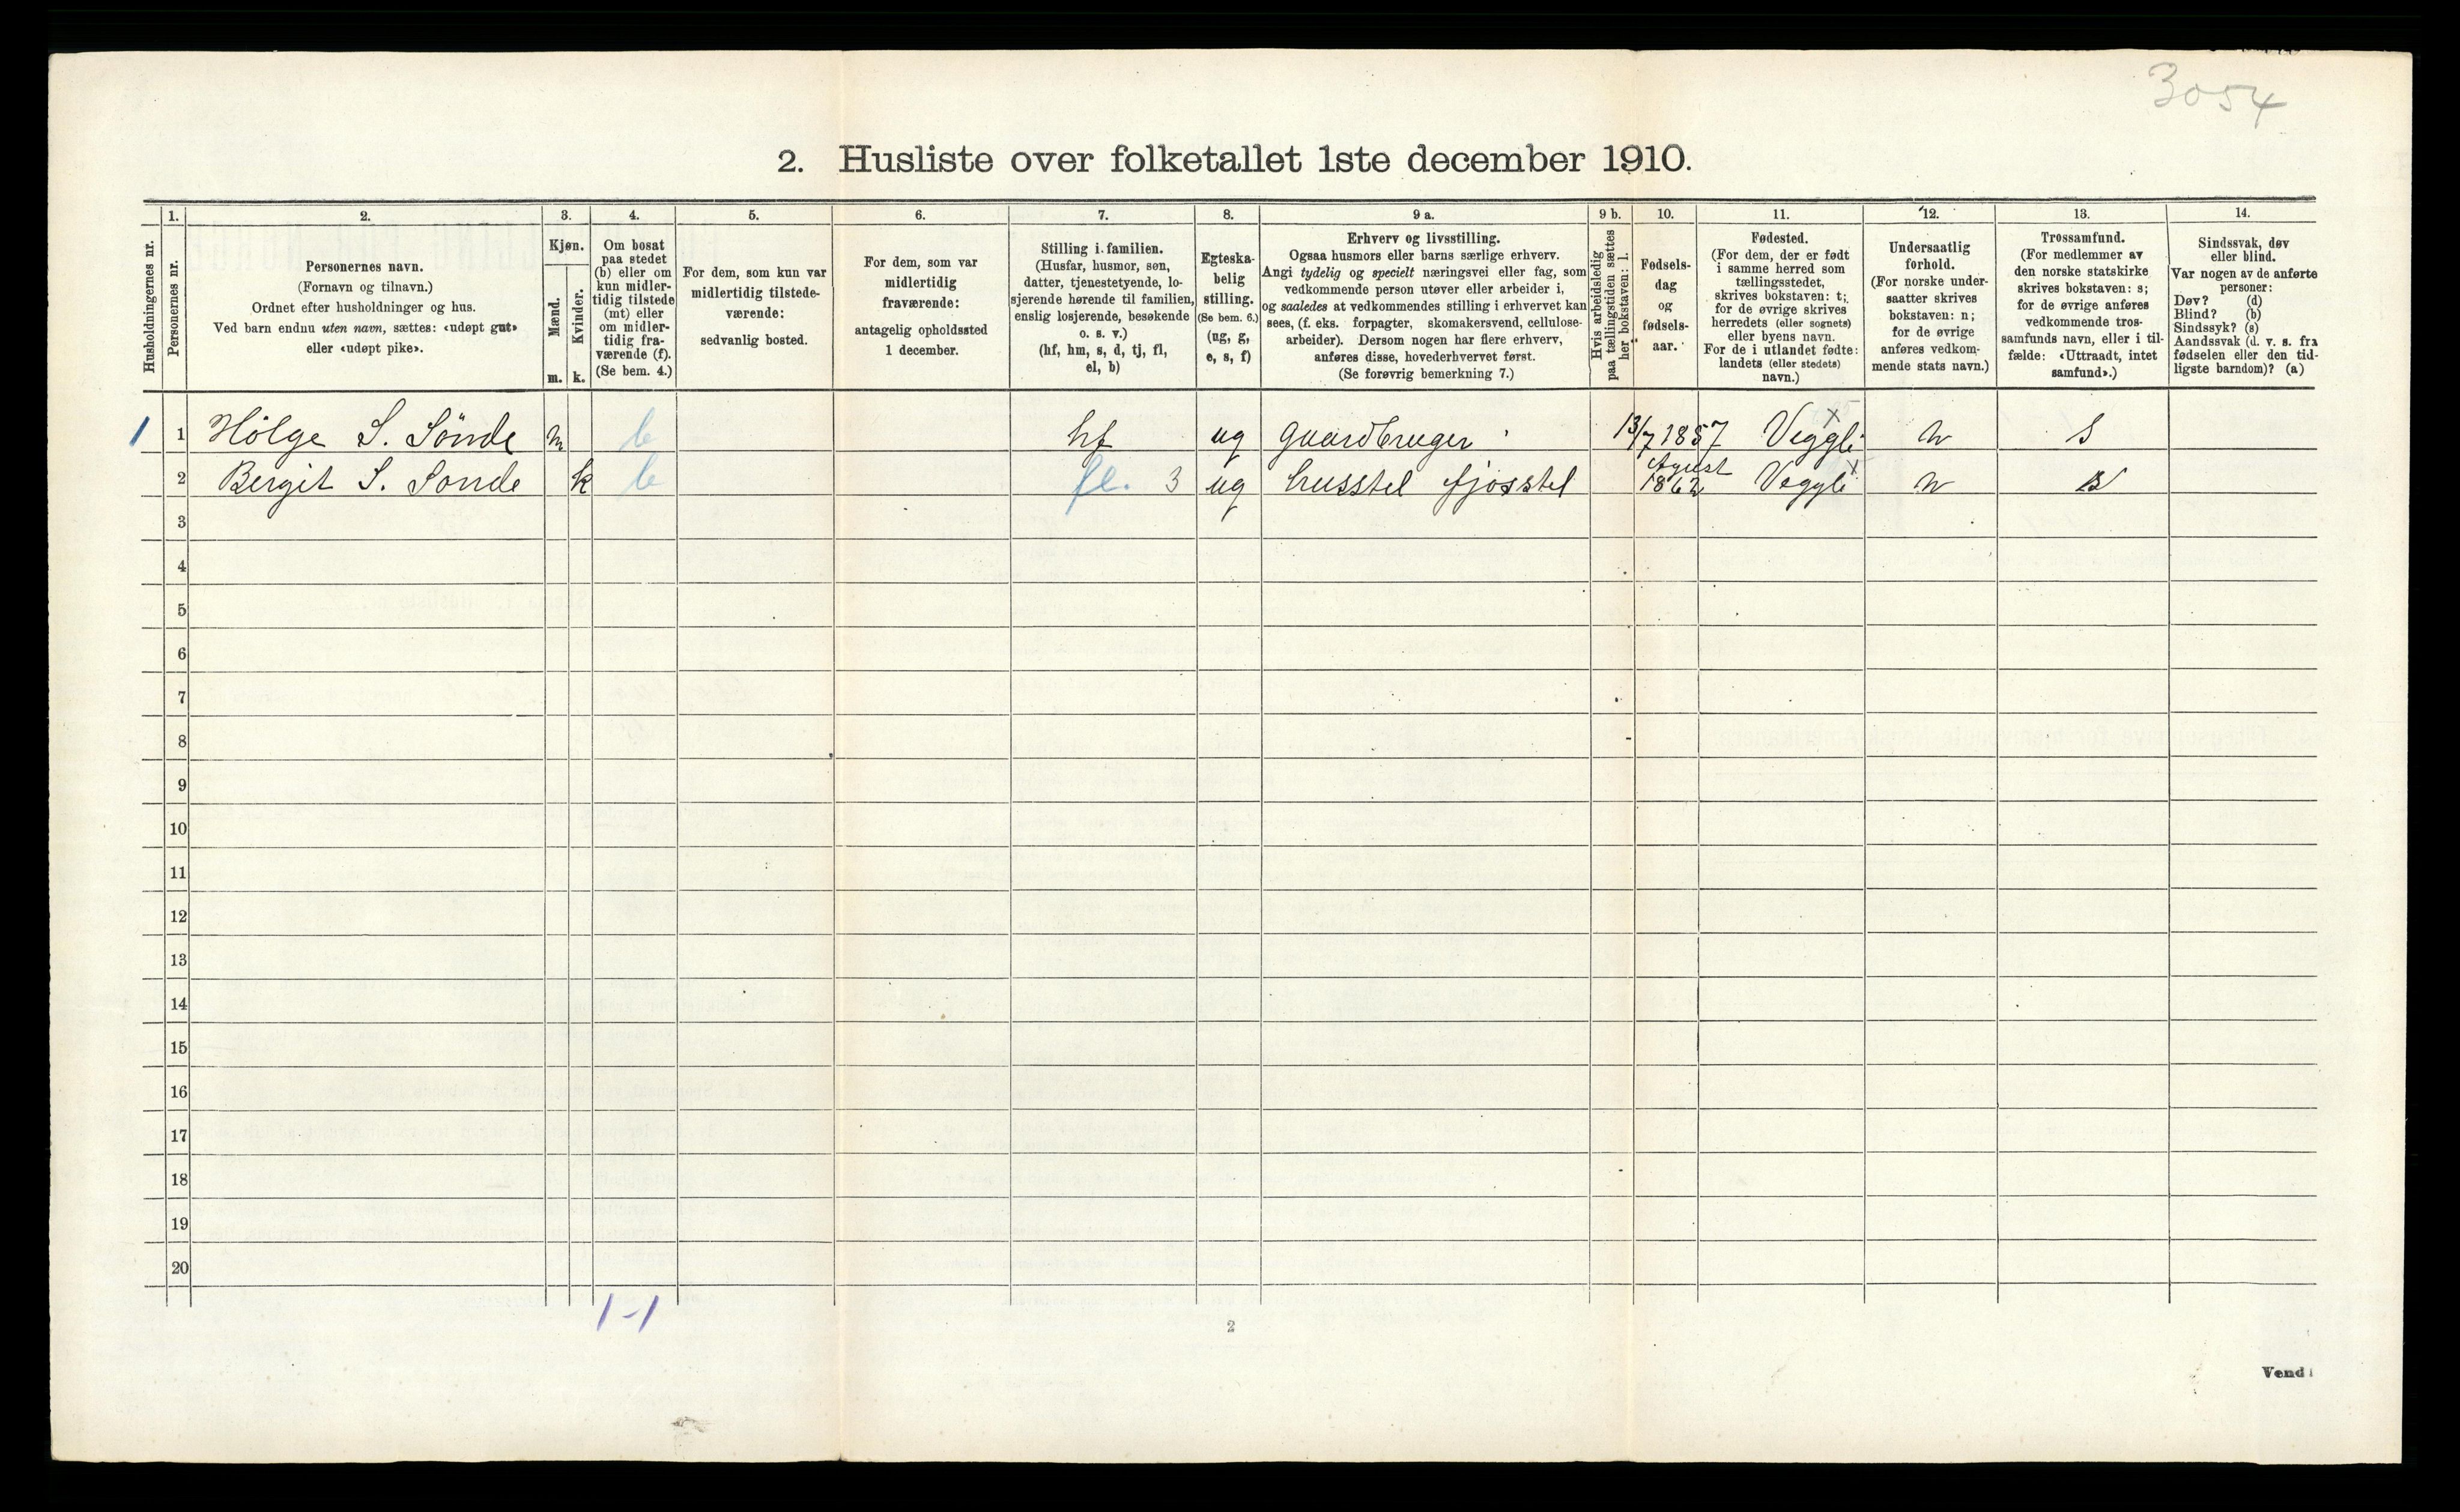 3054
2. Husliste over folketallet 1ste december 1910.
Husholdningernes nr.
1.
Personernes nr.
2.
Personernes navn.
(Fornavn og tilnavn.)
Ordnet efter husholdninger og hus.
Ved barn endnu uten navn, sættes: «udøpt gut»
eller «udøpt pike».
3.
Kjøn.
Mænd.
Kvinder.
m.
k.
4.
Om bosat
paa stedet
(b) eller om
kun midler-
tidig tilstede
(mt) eller
om midler-
tidig fra-
værende (f).
(Se bem. 4.)
5.
For dem, som kun var
midlertidig tilstede-
værende:
sedvanlig bosted.
6.
For dem, som var
midlertidig
fraværende:
antagelig opholdssted
1 december.
7.
Stilling i familien.
(Husfar, husmor, søn,
datter, tjenestetyende, lo-
sjerende hørende til familien,
enslig losjerende, besøkende
o. s. v.)
(hf, hm, s, d, tj, fl,
el, b)
8.
Egteska-
belig
stilling.
(Se bem. 6.)
(ug, g,
e, s, f)
9 a.
Erhverv og livsstilling.
Ogsaa husmors eller barns særlige erhverv.
Angi tydelig og specielt næringsvei eller fag, som
vedkommende person utøver eller arbeider i,
og saaledes at vedkommendes stilling i erhvervet kan
sees, (f. eks. forpagter, skomakersvend, cellulose-
arbeider). Dersom nogen har flere erhverv,
anføres disse, hovederhvervet først.
(Se forøvrig bemerkning 7.)
9 b.
Hvis arbeidsledig
paa tællingstiden sættes
her bokstaven: l.
10.
Fødsels-
dag
og
fødsels-
aar.
11.
Fødested.
(For dem, der er født
i samme herred som
tællingsstedet,
skrives bokstaven: t;
for de øvrige skrives
herredets (eller sognets)
eller byens navn.
For de i utlandet fødte:
landets (eller stedets)
navn.)
12.
Undersaatlig
forhold.
(For norske under-
saatter skrives
bokstaven: n;
for de øvrige
anføres vedkom-
mende stats navn.)
13.
Trossamfund.
(For medlemmer av
den norske statskirke
skrives bokstaven: s;
for de øvrige anføres
vedkommende tros-
samfunds navn, eller i til-
fælde: «Uttraadt, intet
samfund».)
14.
Sindssvak, døv
eller blind.
Var nogen av de anførte
personer:
Døv? (d)
Blind? (b)
Sindssyk? (s)
Aandssvak (d. v. s. fra
fødselen eller den tid-
ligste barndom)? (a)
1 1 Hölge S. Sönde m b hf ug guardbruger 13/7 1857 Veggli n S
2 Bergit S. Sonde k b fl. 3 ug husstel fjosstel Agust 1862 Veggli n S
3
4
5
6
7
8
9
10
11
12
13
14
15
16
17
18
19
20
1-1
2
Vend